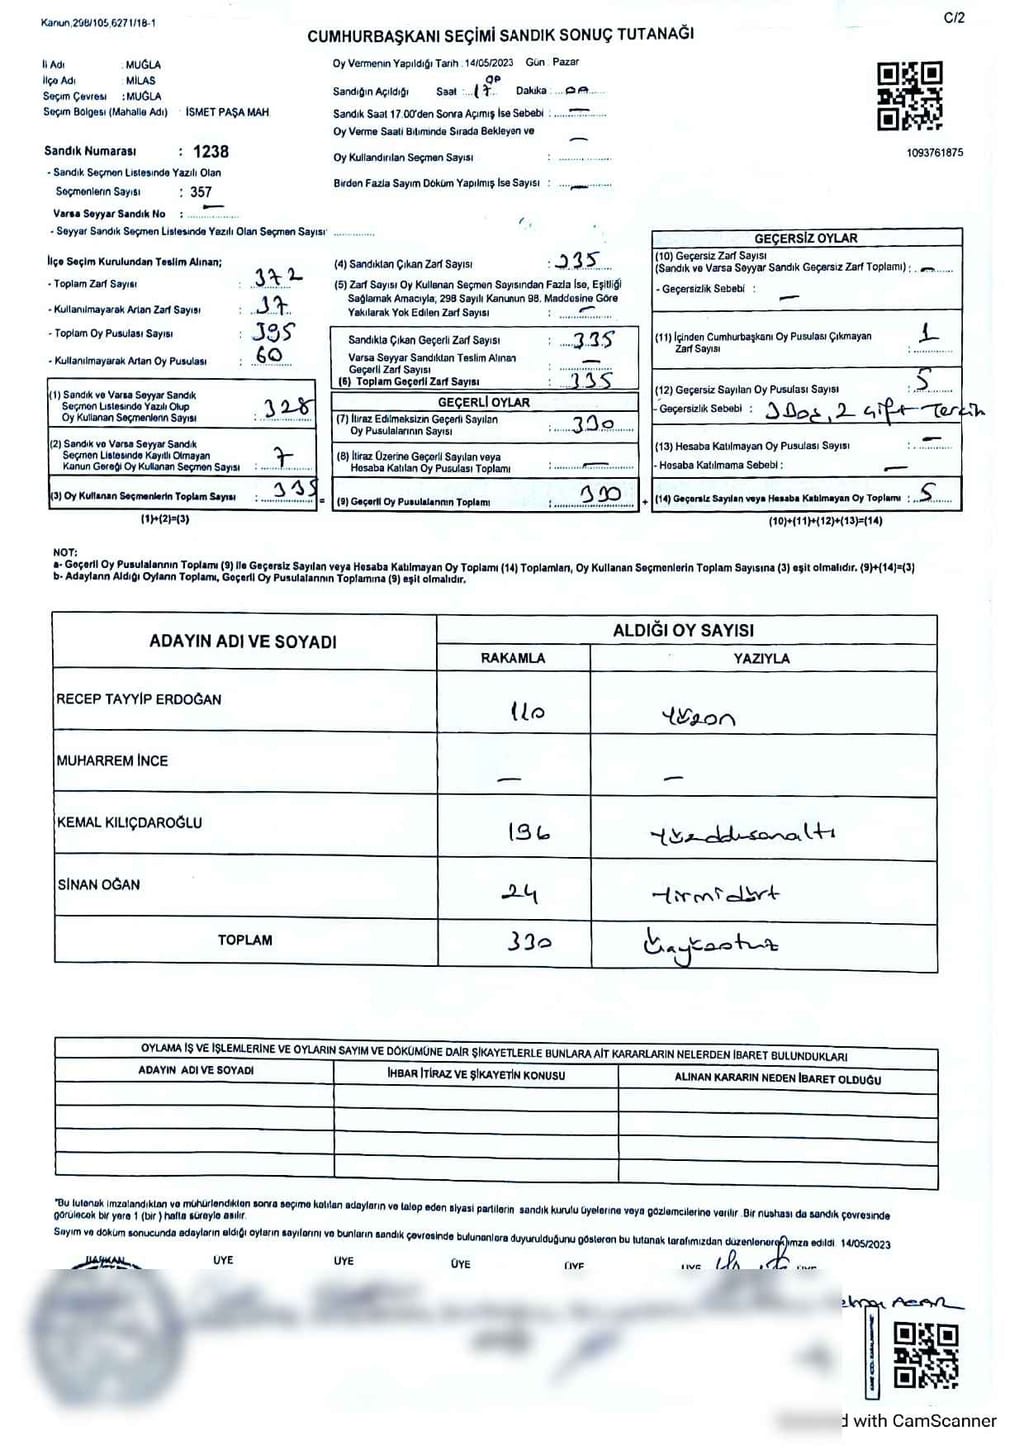 Kanun,298/105,6271/18-1
C/2
CUMHURBAŞKANI SEÇİMİ SANDIK SONUÇ TUTANAĞI
İli Adı : MUĞLA
İlçe Adı : MİLAS
Seçim Çevresi : MUĞLA
Seçim Bölgesi (Mahalle Adı) : İSMET PAŞA MAH
Sandık Numarası : 1238
- Sandık Seçmen Listesinde Yazılı Olan
Seçmenlerin Sayısı : 357
Varsa Seyyar Sandık No : —
- Seyyar Sandık Seçmen Listesinde Yazılı Olan Seçmen Sayısı
Oy Vermenin Yapıldığı Tarih : 14/05/2023 Gün : Pazar
Sandığın Açıldığı Saat : 17 Dakika :
Sandık Saat 17.00'den Sonra Açımış İse Sebebi : —
Oy Verme Saati Bitiminde Sırada Bekleyen ve —
Oy Kullandırılan Seçmen Sayısı :
Birden Fazla Sayım Döküm Yapılmış İse Sayısı : —
1093761875
İlçe Seçim Kurulundan Teslim Alınan;
- Toplam Zarf Sayısı : 372
- Kullanılmayarak Artan Zarf Sayısı : 37
- Toplam Oy Pusulası Sayısı : 395
- Kullanılmayarak Artan Oy Pusulası : 60
(1) Sandık ve Varsa Seyyar Sandık
Seçmen Listesinde Yazılı Olup
Oy Kullanan Seçmenlerin Sayısı : 328
(2) Sandık ve Varsa Seyyar Sandık
Seçmen Listesinde Kayıtlı Olmayan
Kanun Gereği Oy Kullanan Seçmen Sayısı : 7
(3) Oy Kullanan Seçmenlerin Toplam Sayısı : 335 =
(1)+(2)=(3)
(4) Sandıktan Çıkan Zarf Sayısı : 335
(5) Zarf Sayısı Oy Kullanan Seçmen Sayısından Fazla İse, Eşitliği
Sağlamak Amacıyla, 298 Sayılı Kanunun 98. Maddesine Göre
Yakılarak Yok Edilen Zarf Sayısı : —
Sandıkta Çıkan Geçerli Zarf Sayısı : 335
Varsa Seyyar Sandıktan Teslim Alınan
Geçerli Zarf Sayısı : —
(6) Toplam Geçerli Zarf Sayısı : 335
GEÇERLİ OYLAR
(7) İtiraz Edilmeksizin Geçerli Sayılan
Oy Pusulalarının Sayısı : 330
(8) İtiraz Üzerine Geçerli Sayılan veya
Hesaba Katılan Oy Pusulası Toplamı : —
(9) Geçerli Oy Pusulalarının Toplamı : 330 +
GEÇERSİZ OYLAR
(10) Geçersiz Zarf Sayısı
(Sandık ve Varsa Seyyar Sandık Geçersiz Zarf Toplamı) : —
- Geçersizlik Sebebi : —
(11) İçinden Cumhurbaşkanı Oy Pusulası Çıkmayan
Zarf Sayısı : 1
(12) Geçersiz Sayılan Oy Pusulası Sayısı : 5
- Geçersizlik Sebebi : 3 Boş, 2 Çift Tercih
(13) Hesaba Katılmayan Oy Pusulası Sayısı : —
- Hesaba Katılmama Sebebi : —
(14) Geçersiz Sayılan veya Hesaba Katılmayan Oy Toplamı : 5
(10)+(11)+(12)+(13)=(14)
NOT:
a- Geçerli Oy Pusulalarının Toplamı (9) ile Geçersiz Sayılan veya Hesaba Katılmayan Oy Toplamı (14) Toplamları, Oy Kullanan Seçmenlerin Toplam Sayısına (3) eşit olmalıdır. (9)+(14)=(3)
b- Adayların Aldığı Oyların Toplamı, Geçerli Oy Pusulalarının Toplamına (9) eşit olmalıdır.
ADAYIN ADI VE SOYADI
ALDIĞI OY SAYISI
RAKAMLA YAZIYLA
RECEP TAYYİP ERDOĞAN 110 Yüzon
MUHARREM İNCE — —
KEMAL KILIÇDAROĞLU 196 Yüzdoksanaltı
SİNAN OĞAN 24 Yirmidört
TOPLAM 330 Üçyüzotuz
OYLAMA İŞ VE İŞLEMLERİNE VE OYLARIN SAYIM VE DÖKÜMÜNE DAİR ŞİKAYETLERLE BUNLARA AİT KARARLARIN NELERDEN İBARET BULUNDUKLARI
ADAYIN ADI VE SOYADI İHBAR İTİRAZ VE ŞİKAYETİN KONUSU ALINAN KARARIN NEDEN İBARET OLDUĞU
"Bu tutanak imzalandıktan ve mühürlendikten sonra seçime katılan adayların ve talep eden siyasi partilerin sandık kurulu üyelerine veya gözlemcilerine verilir. Bir nüshası da sandık çevresinde
görülecek bir yere 1 (bir) hafta süreyle asılır.
Sayım ve döküm sonucunda adayların aldığı oyların sayılarını ve bunların sandık çevresinde bulunanlara duyurulduğunu gösteren bu tutanak tarafımızdan düzenlenerek imza edildi. 14/05/2023
BAŞKAN ÜYE ÜYE ÜYE ÜYE ÜYE ÜYE
with CamScanner